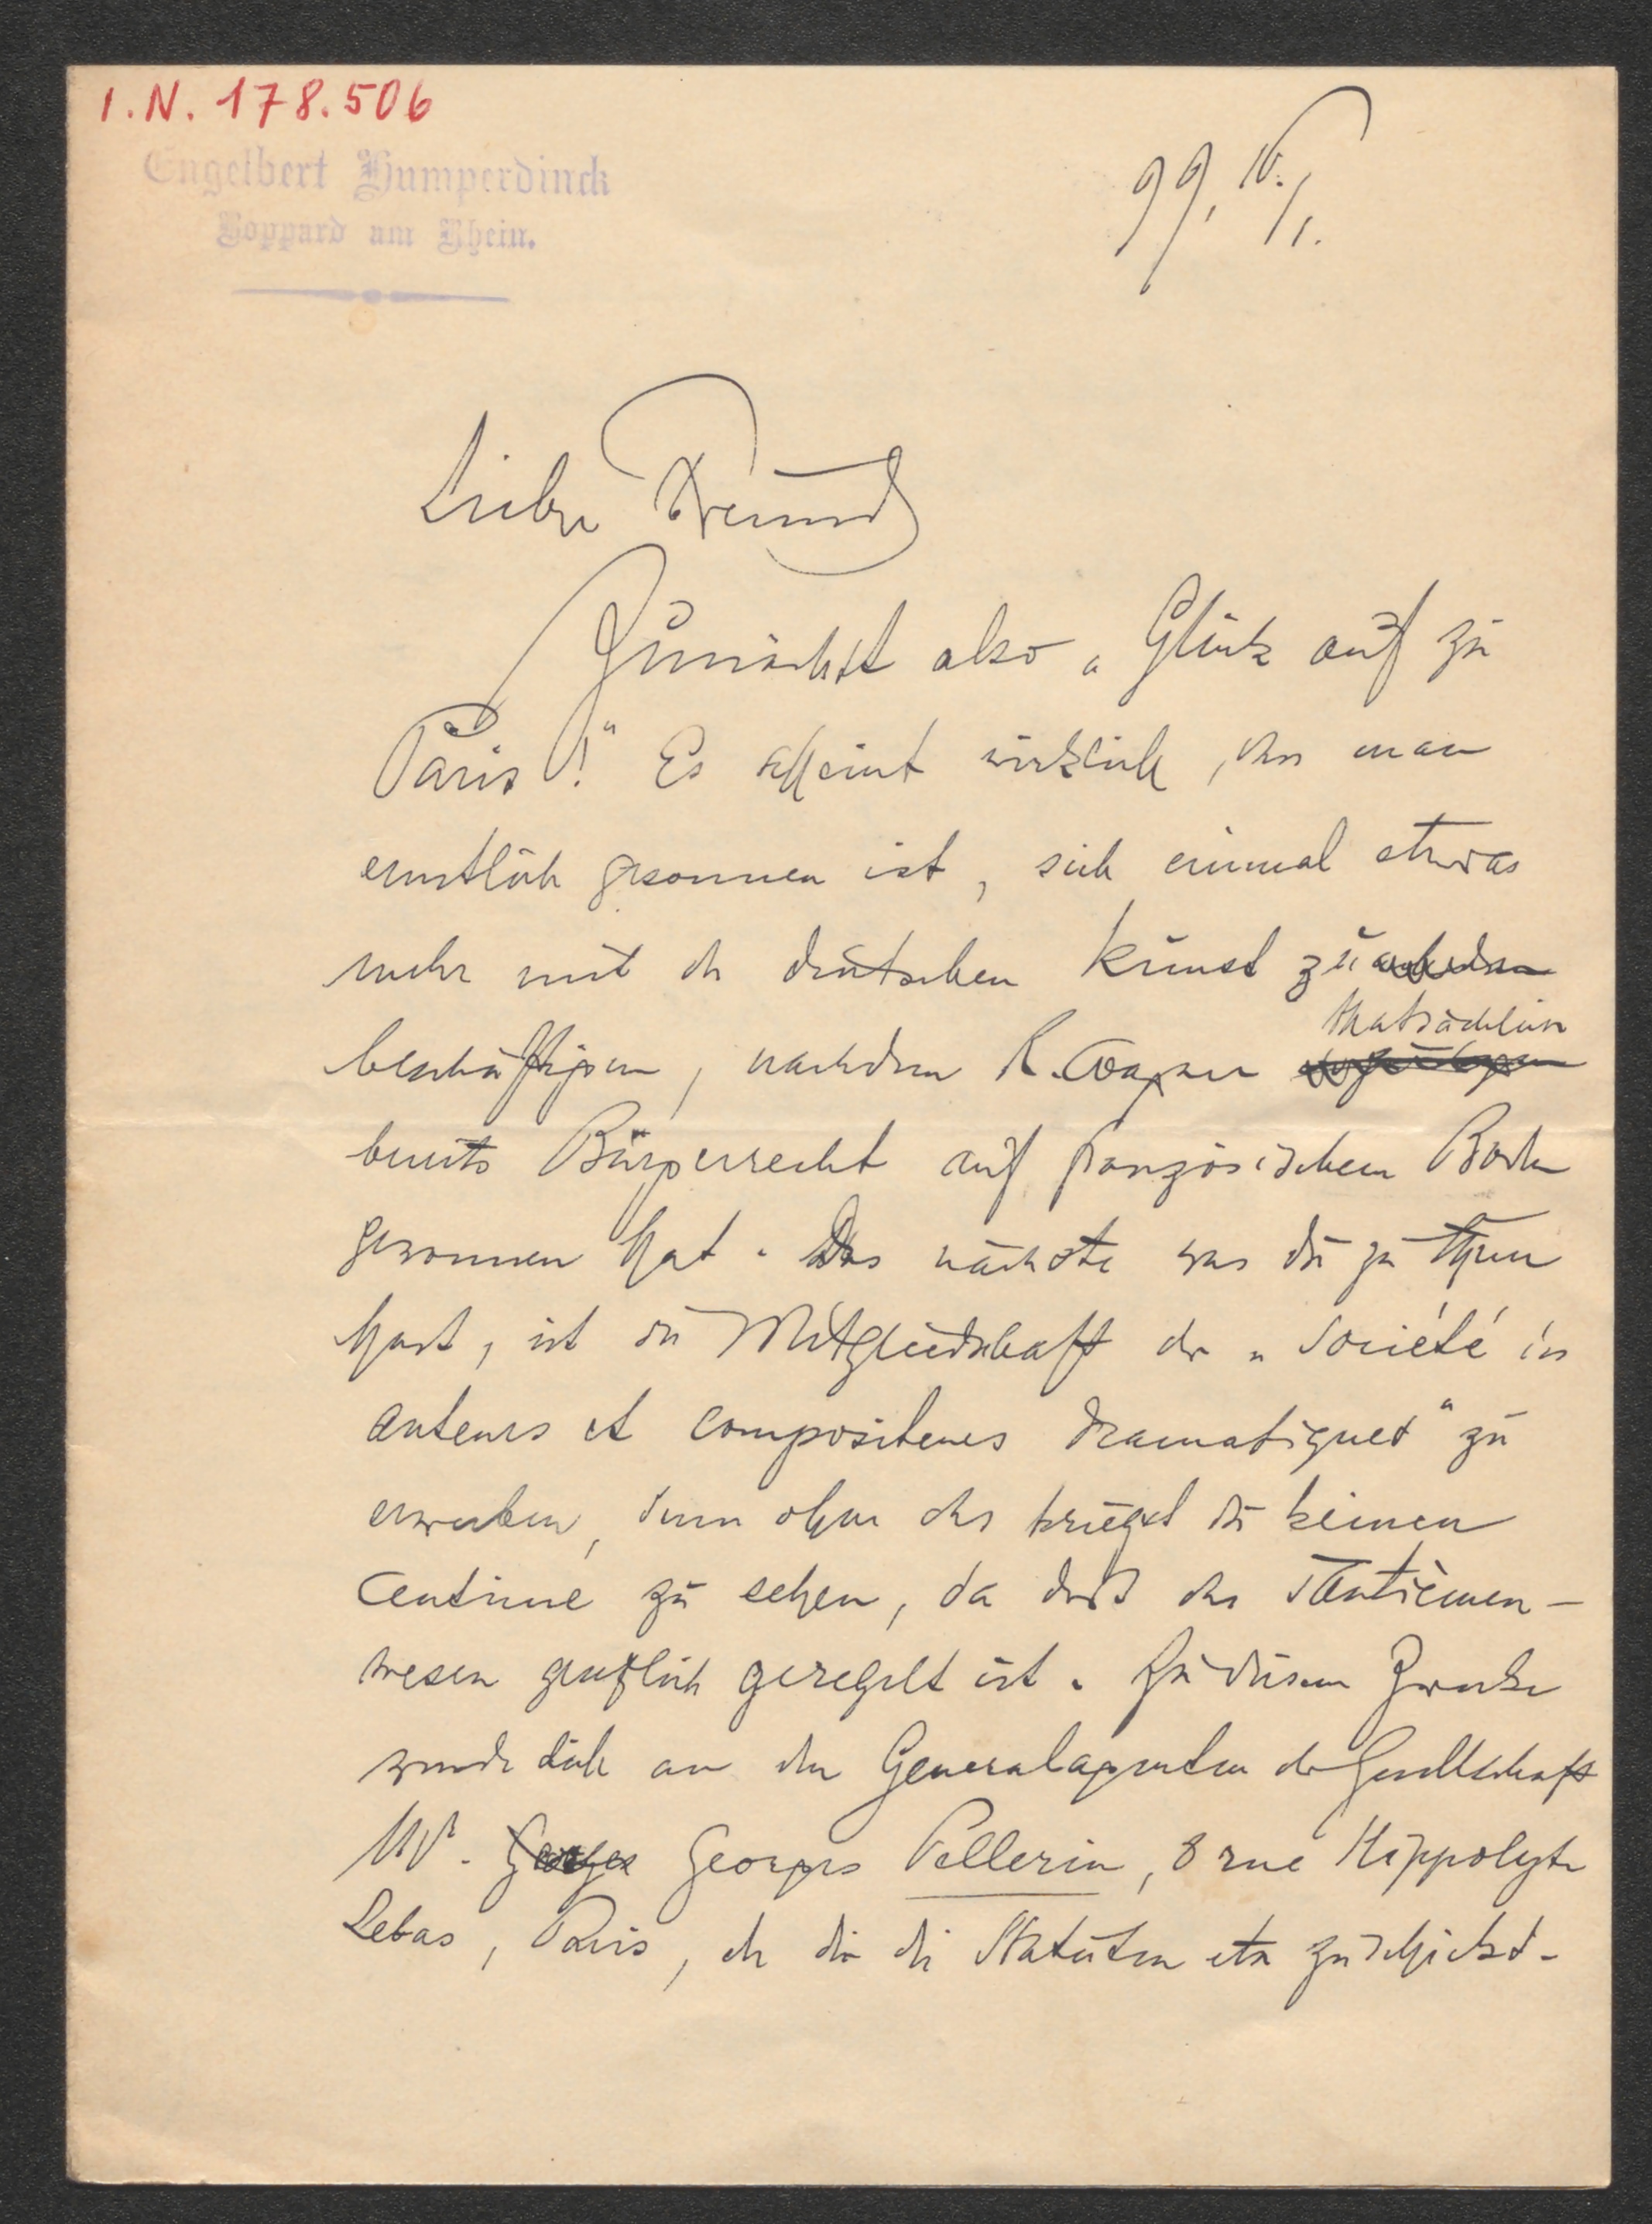 I.N. 178.506
Engelbert Humperdinck
Boppard am Rhein.
99, 16/1.
Lieber Freund
Zunächst also „Glück auf zu
Paris!" Es scheint wirklich, dass man
ernstlich gesonnen ist, sich einmal etwas
mehr mit der deutschen Kunst zu
thatsächlich
beschäftigen, nachdem R. Wagner
bereits Bürgerrecht auf französischem Boden
gewonnen hat. Das nächste was du zu thun
hast, ist die Mitgliedschaft der „Société des
auteurs et compositeurs dramatiques" zu
erwerben, denn ohne das kriegst du keinen
Centime zu sehen, da dort das Tantièmen-
wesen gesetzlich geregelt ist. Zu diesem Zwecke
wende dich an den Generalagenten der Gesellschaft
Mr. Georges Georges Pellerin, 8 rue Hippolyte
Lebas, Paris, der dir die Statuten etc zuschickt.